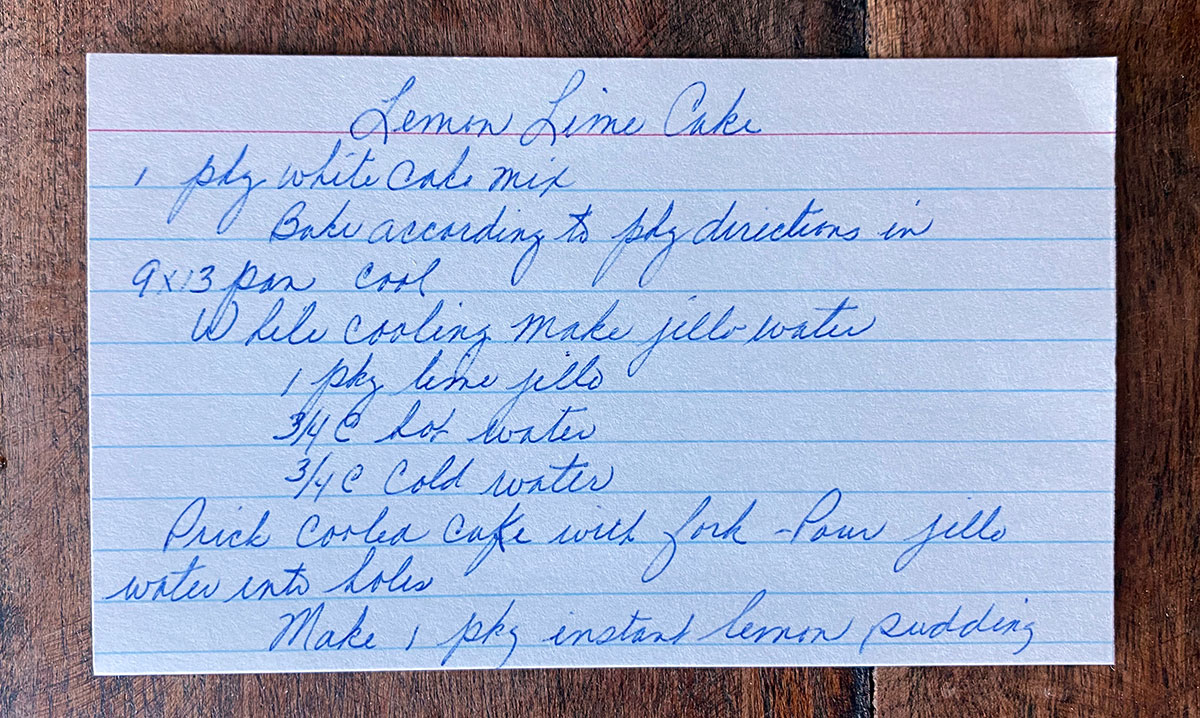 Lemon Lime Cake
1 pkg white cake mix
Bake according to pkg directions in
9x13 pan cool
While cooling make jello water
1 pkg lime jello
3/4 C hot water
3/4 C Cold water
Prick cooled cake with fork - Pour jello
water into holes
Make 1 pkg instant lemon pudding